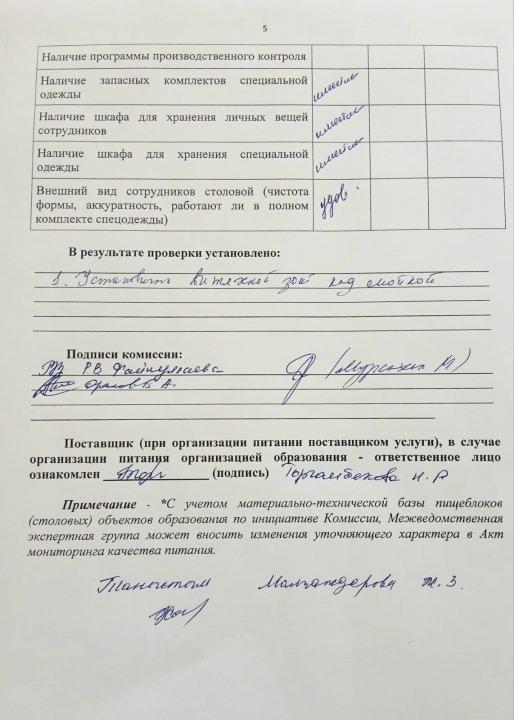 5
Наличие программы производственного контроля
Наличие запасных комплектов специальной
одежды
имеется
Наличие шкафа для хранения личных вещей
сотрудников
имеется
Наличие шкафа для хранения специальной
одежды
имеется
Внешний вид сотрудников столовой (чистота
формы, аккуратность, работают ли в полном
комплекте спецодежды)
удов.
В результате проверки установлено:
1. Установить вытяжной зонт под мойкой
Подписи комиссии:
Р.В.
А.
Поставщик (при организации питании поставщиком услуги), в случае
организации питания организацией образования - ответственное лицо
ознакомлен (подпись)
Примечание - *С учетом материально-технической базы пищеблоков
(столовых) объектов образования по инициативе Комиссии, Межведомственная
экспертная группа может вносить изменения уточняющего характера в Акт
мониторинга качества питания.
Таныстым